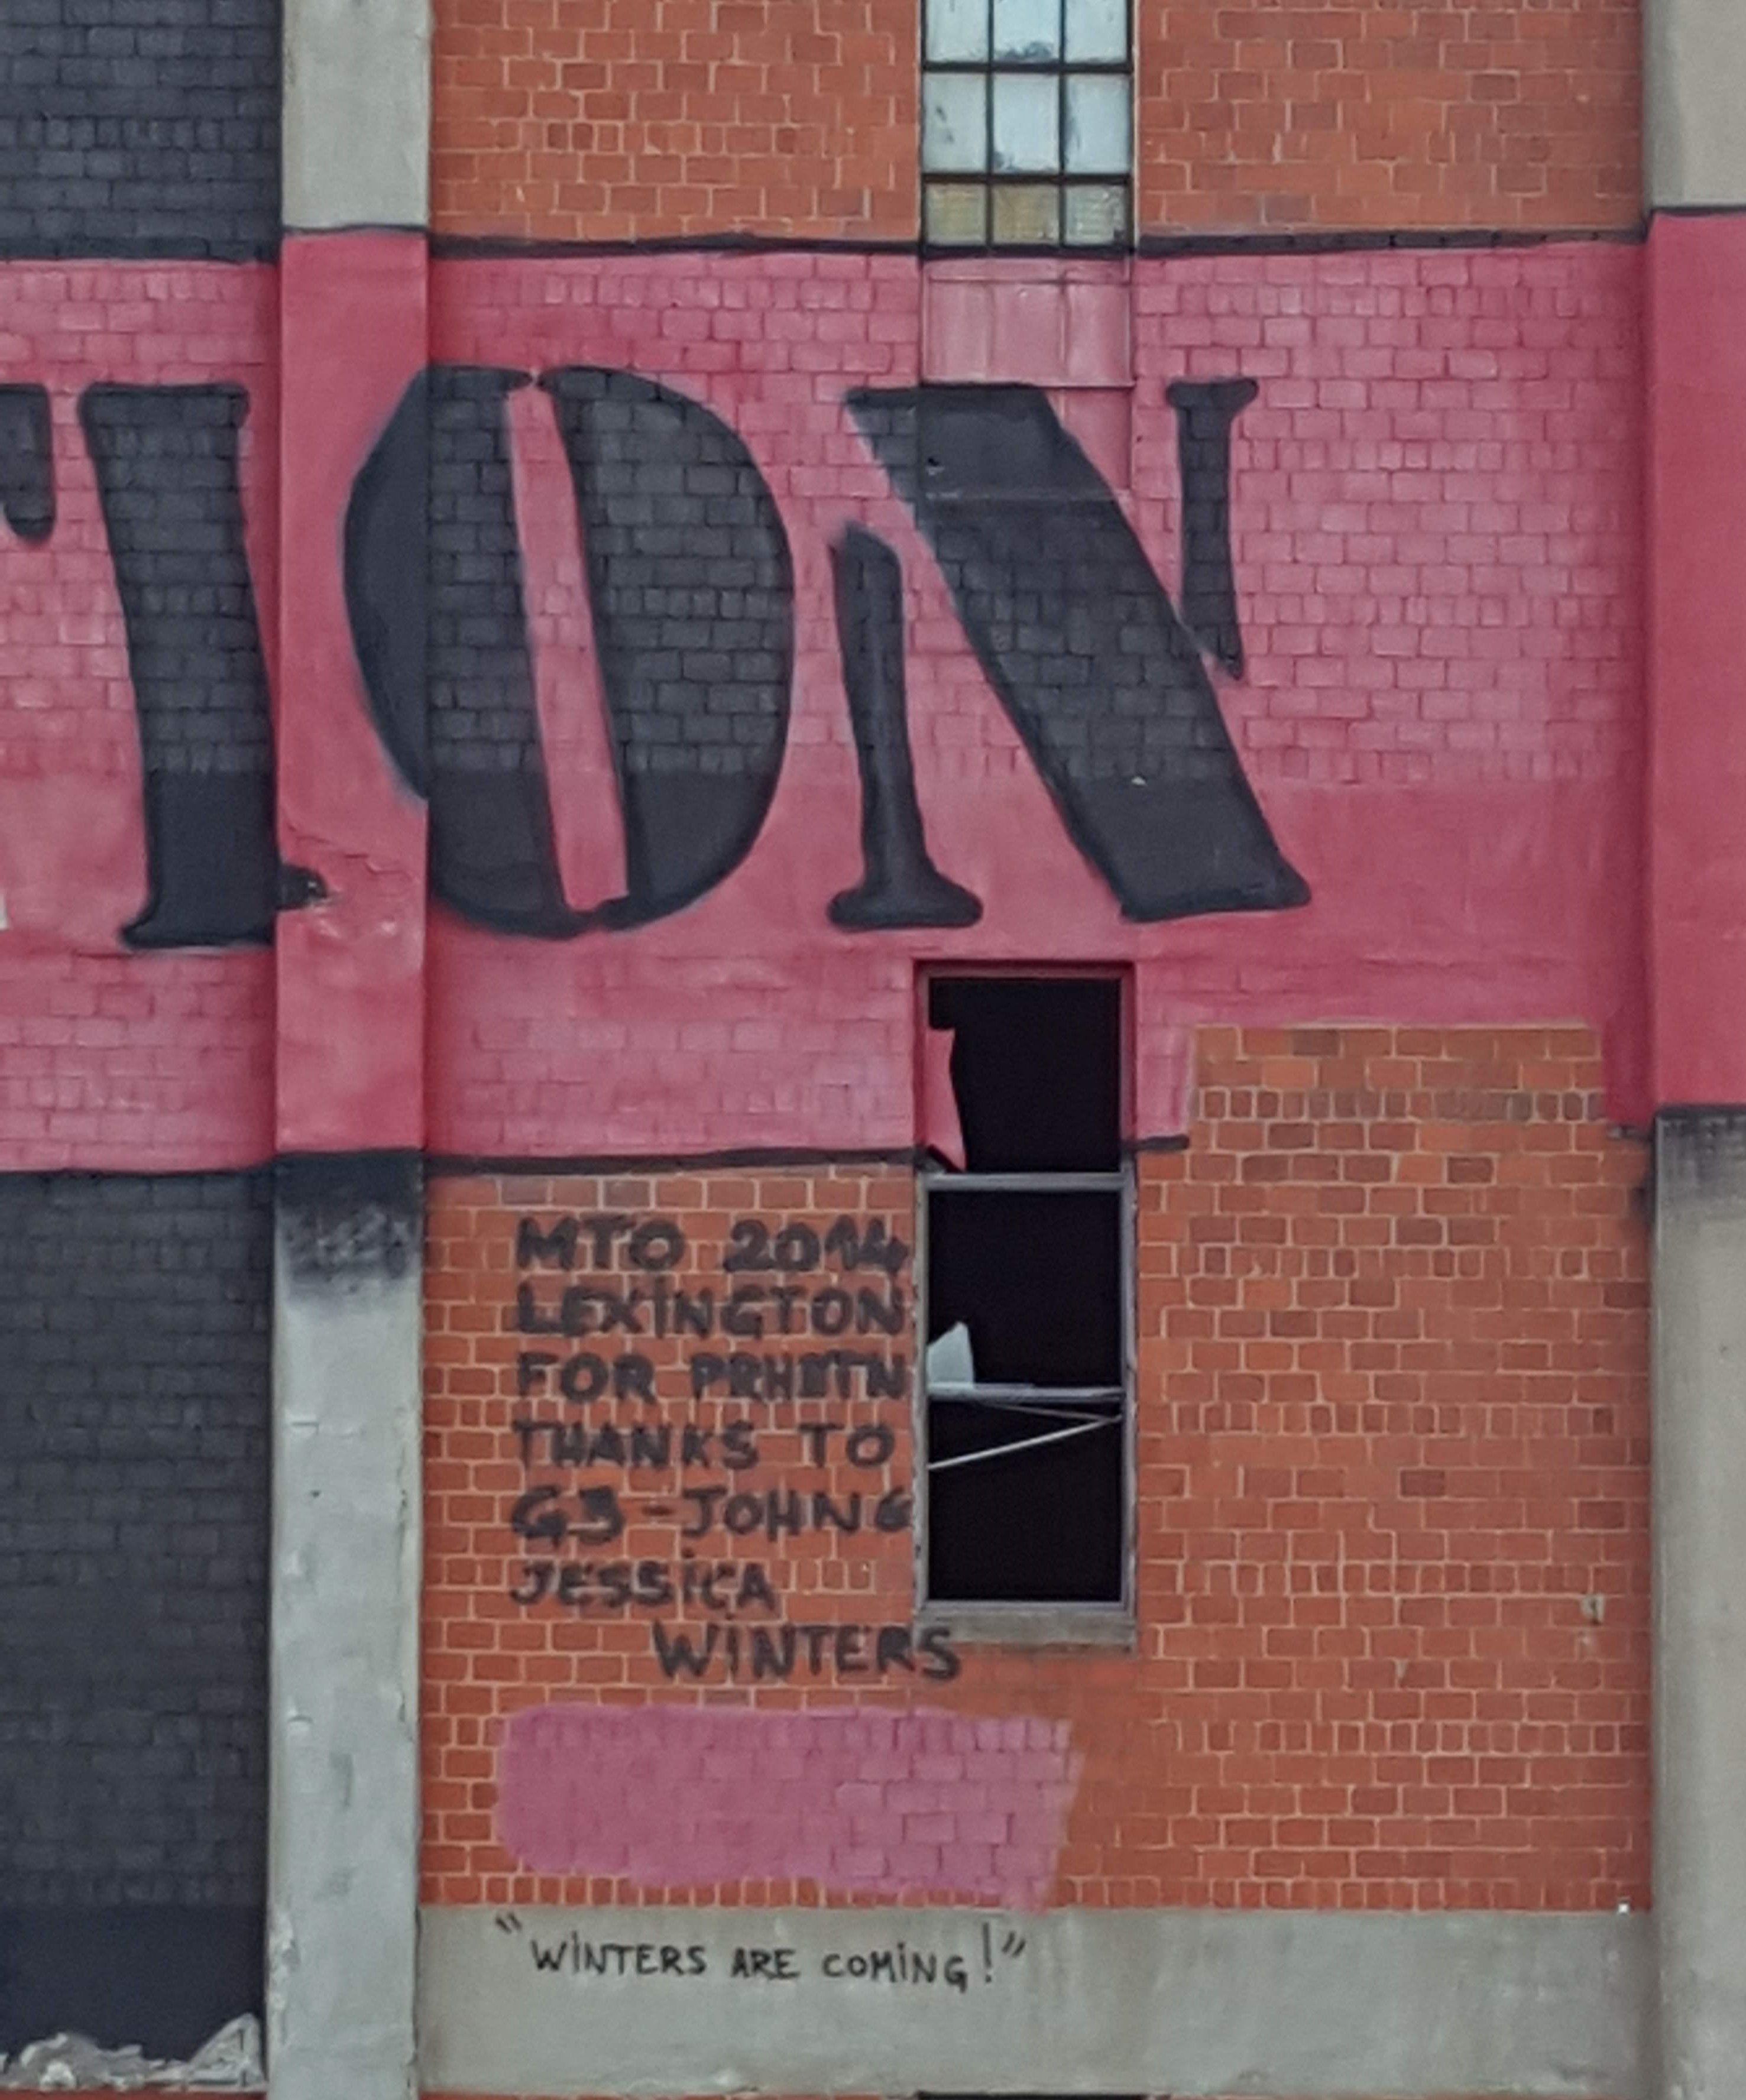 TION
MTO 2014
LEXINGTON
FOR PRHBTN
THANKS TO
G3-JOHN G
JESSICA
WINTERS
"WINTERS ARE COMING!"